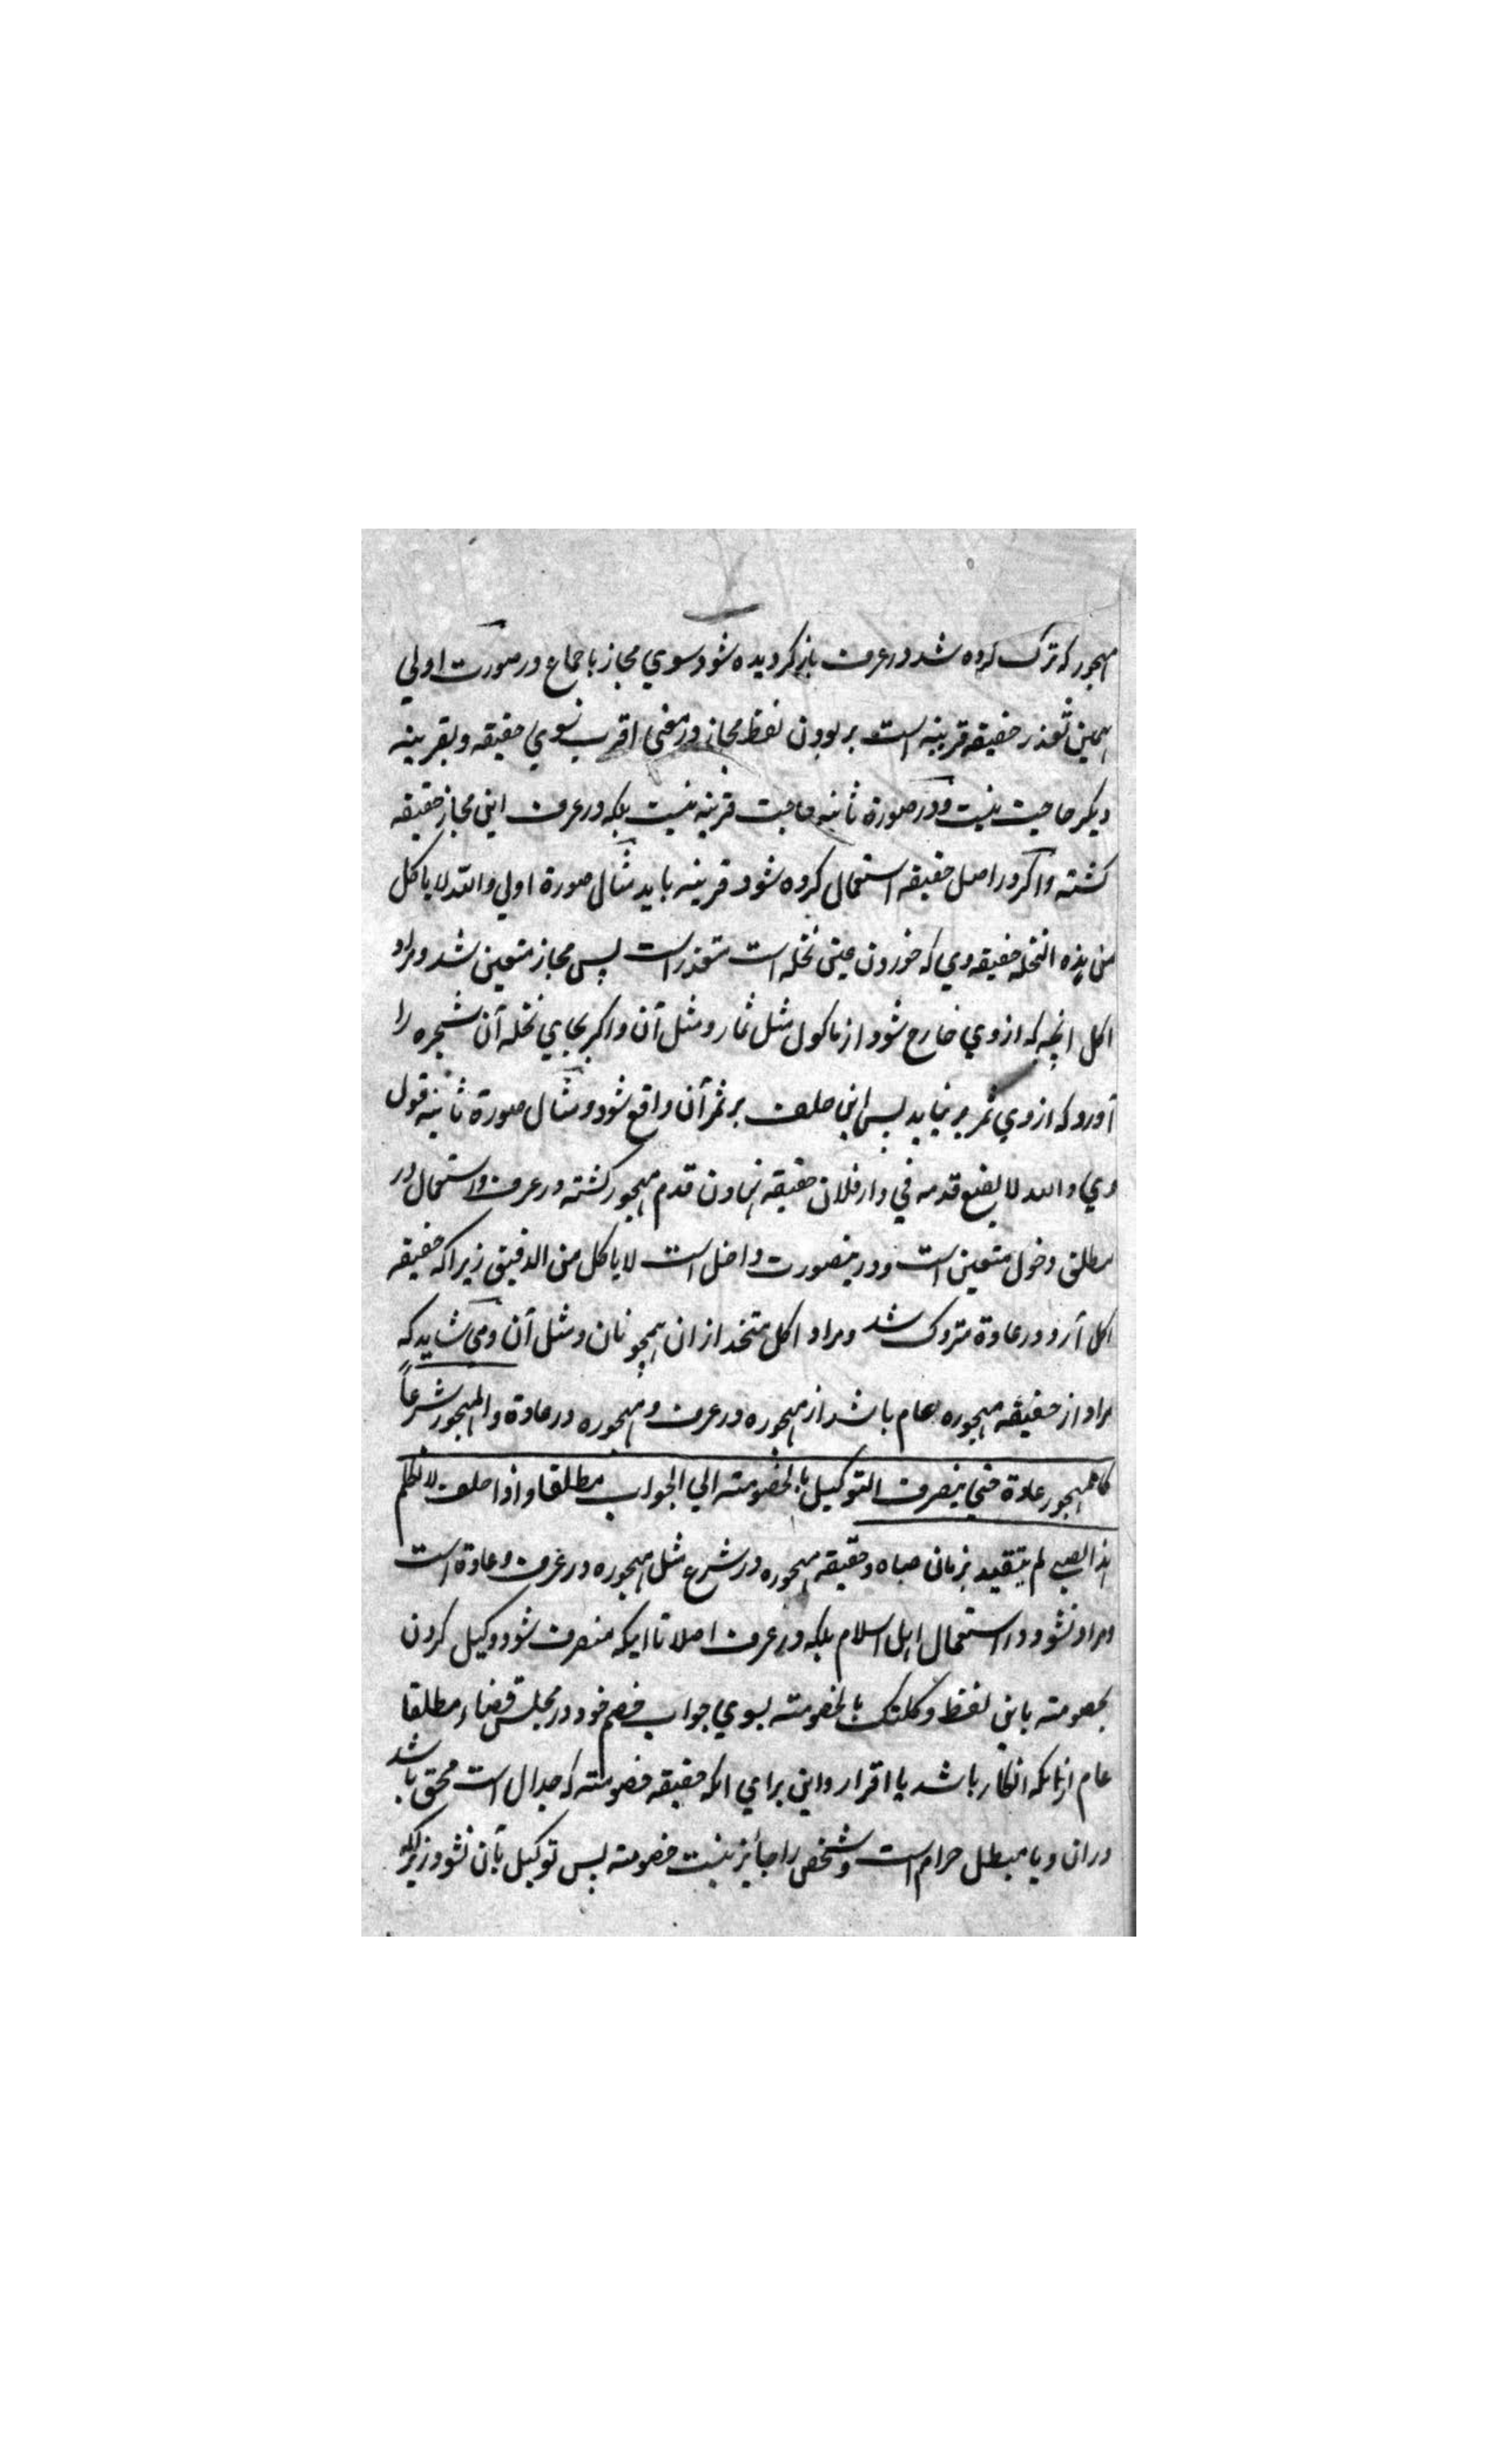 مهجور که ترک کرده شد در عرف باز کردیده شود سوي مجاز باجماع در صورت اولي
همین تعذر حقیقه قرینه است بر بودن لفظ مجاز در معني اقرب بسوي حقیقه و بقرینه
دیکر حاجت نیست و در صورة ثانیه حاجت قرینه نیست بلکه در عرف این مجاز حقیقه
کشته و اکر در اصل حقیقه استعمال کرده شود قرینه باید مثال صورة اولي والله لا یاکل
من هذه النخله حقیقه وي که خوردن عین نخله است متعذر است پس مجاز متعین شد و مراد
اکل انچه که از وي خارج شود از ماکول مثل ثمار و مثل آن و اکر بجاي نخله آن شجره را
آورد که از وي ثمر بر نیاید پس این حلف بر ثمر آن واقع شود و مثال صورة ثانیه قول
وي والله لا یضع قدمه في دار فلان حقیقه نهادن قدم مهجور کشته در عرف و استعمال در
مطلق دخول متعین است و درینصورت داخل است لا یاکل من الدقیق زیراکه حقیقه
اکل آرد در عادة متروک شد و مراد اکل متخذ از ان همچو نان و مثل آن و مي شاید که
مراد از حقیقه مهجوره عام باشد از مهجوره در عرف و مهجوره در عادة والمهجور شرعاً
کالمهجور عادة حتي ینصرف التوکیل بالخصومته الي الجواب مطلقا واذا حلف لا یکلم
هذا الصبي لم یتقید بزمان صباه و حقیقه مهجوره در شرع مثل مهجوره در عرف و عادة است
و مراد نشود در استعمال اهل اسلام بلکه در عرف اصلا تا اینکه منصرف شود وکیل کردن
بخصومته باین لفظ وکلتک بالخصومته بسوي جواب خصم خود در مجلس قضاء مطلقا
عام ازانکه انکار باشد یا اقرار و این براي انکه حقیقه خصومته که جدال است محق باشد
دران و یا مبطل حرام است و شخصي را جائز نیست خصومته پس توکیل بآن نشود زیراکه